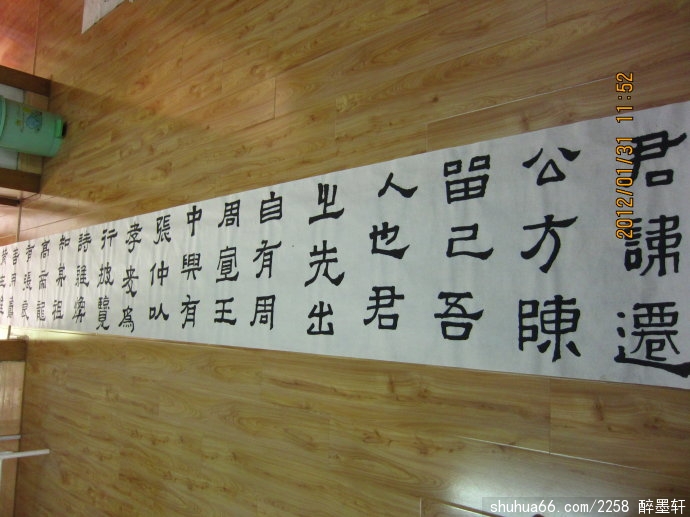 君諱遷
公方陳
留己吾
人也君
之先出
自有周
周宣王
中興有
張仲以
孝友為
行披覽
詩雅煥
知其祖
高帝龍
有張良
善用籌
2012/01/31 11:52
shuhua66.com/2258 醉墨轩